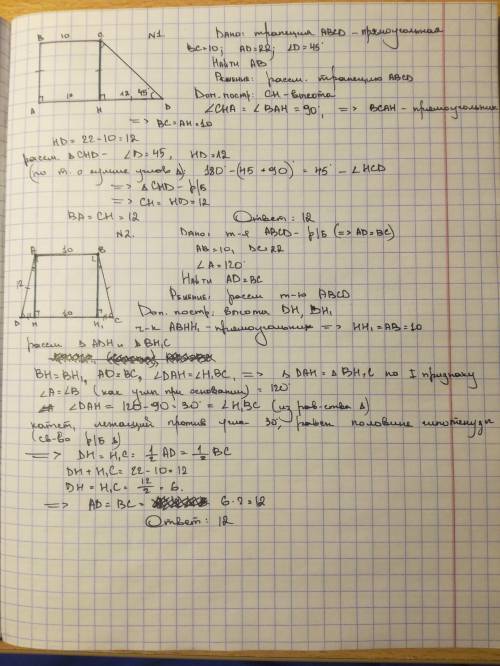 N1 Дано: трапеция ABCD – прямоугольная
B 10 C
BC=10; AD=22; ∠D=45°
Найти AB
Решение: рассм. трапецию ABCD
Доп. постр: CH – высота
10 12 45°
A H D
∠CHA = ∠BAH = 90°, => BCAH – прямоугольник
=> BC = AH = 10
HD = 22-10 = 12
рассм △CHD - ∠D = 45, HD = 12
(по т. о сумме углов △): 180° - (45 + 90)° = 45° - ∠HCD
=> △CHD - р/б
=> CH = HD = 12
BA = CH = 12 Ответ: 12
N2. Дано: т-я ABCD - р/б (=> AD=BC)
AB = 10, DC = 22
∠A = 120°
Найти AD = BC
Решение: рассм т-ю ABCD
Доп. постр: высота DH, BH₁
ч-к ABHH₁ - прямоугольник => HH₁ = AB = 10
10
12
10
D H H₁ C
рассм △ADH и △BH₁C
BH = BH₁, AD = BC, ∠DAH = ∠H₁BC, => △DAH = △BH₁C по I признаку
∠A = ∠B (как углы при основании) = 120°
∠DAH = 120-90 = 30° = ∠H₁BC (из рав-ства △)
катет, лежащий против угла 30°, равен половине гипотенузы
(св-во р/б △)
=> DH = H₁C = 1/2 AD = 1/2 BC
DH + H₁C = 22-10 = 12
DH = H₁C = 12/2 = 6.
=> AD = BC = 6·2 = 12
Ответ: 12